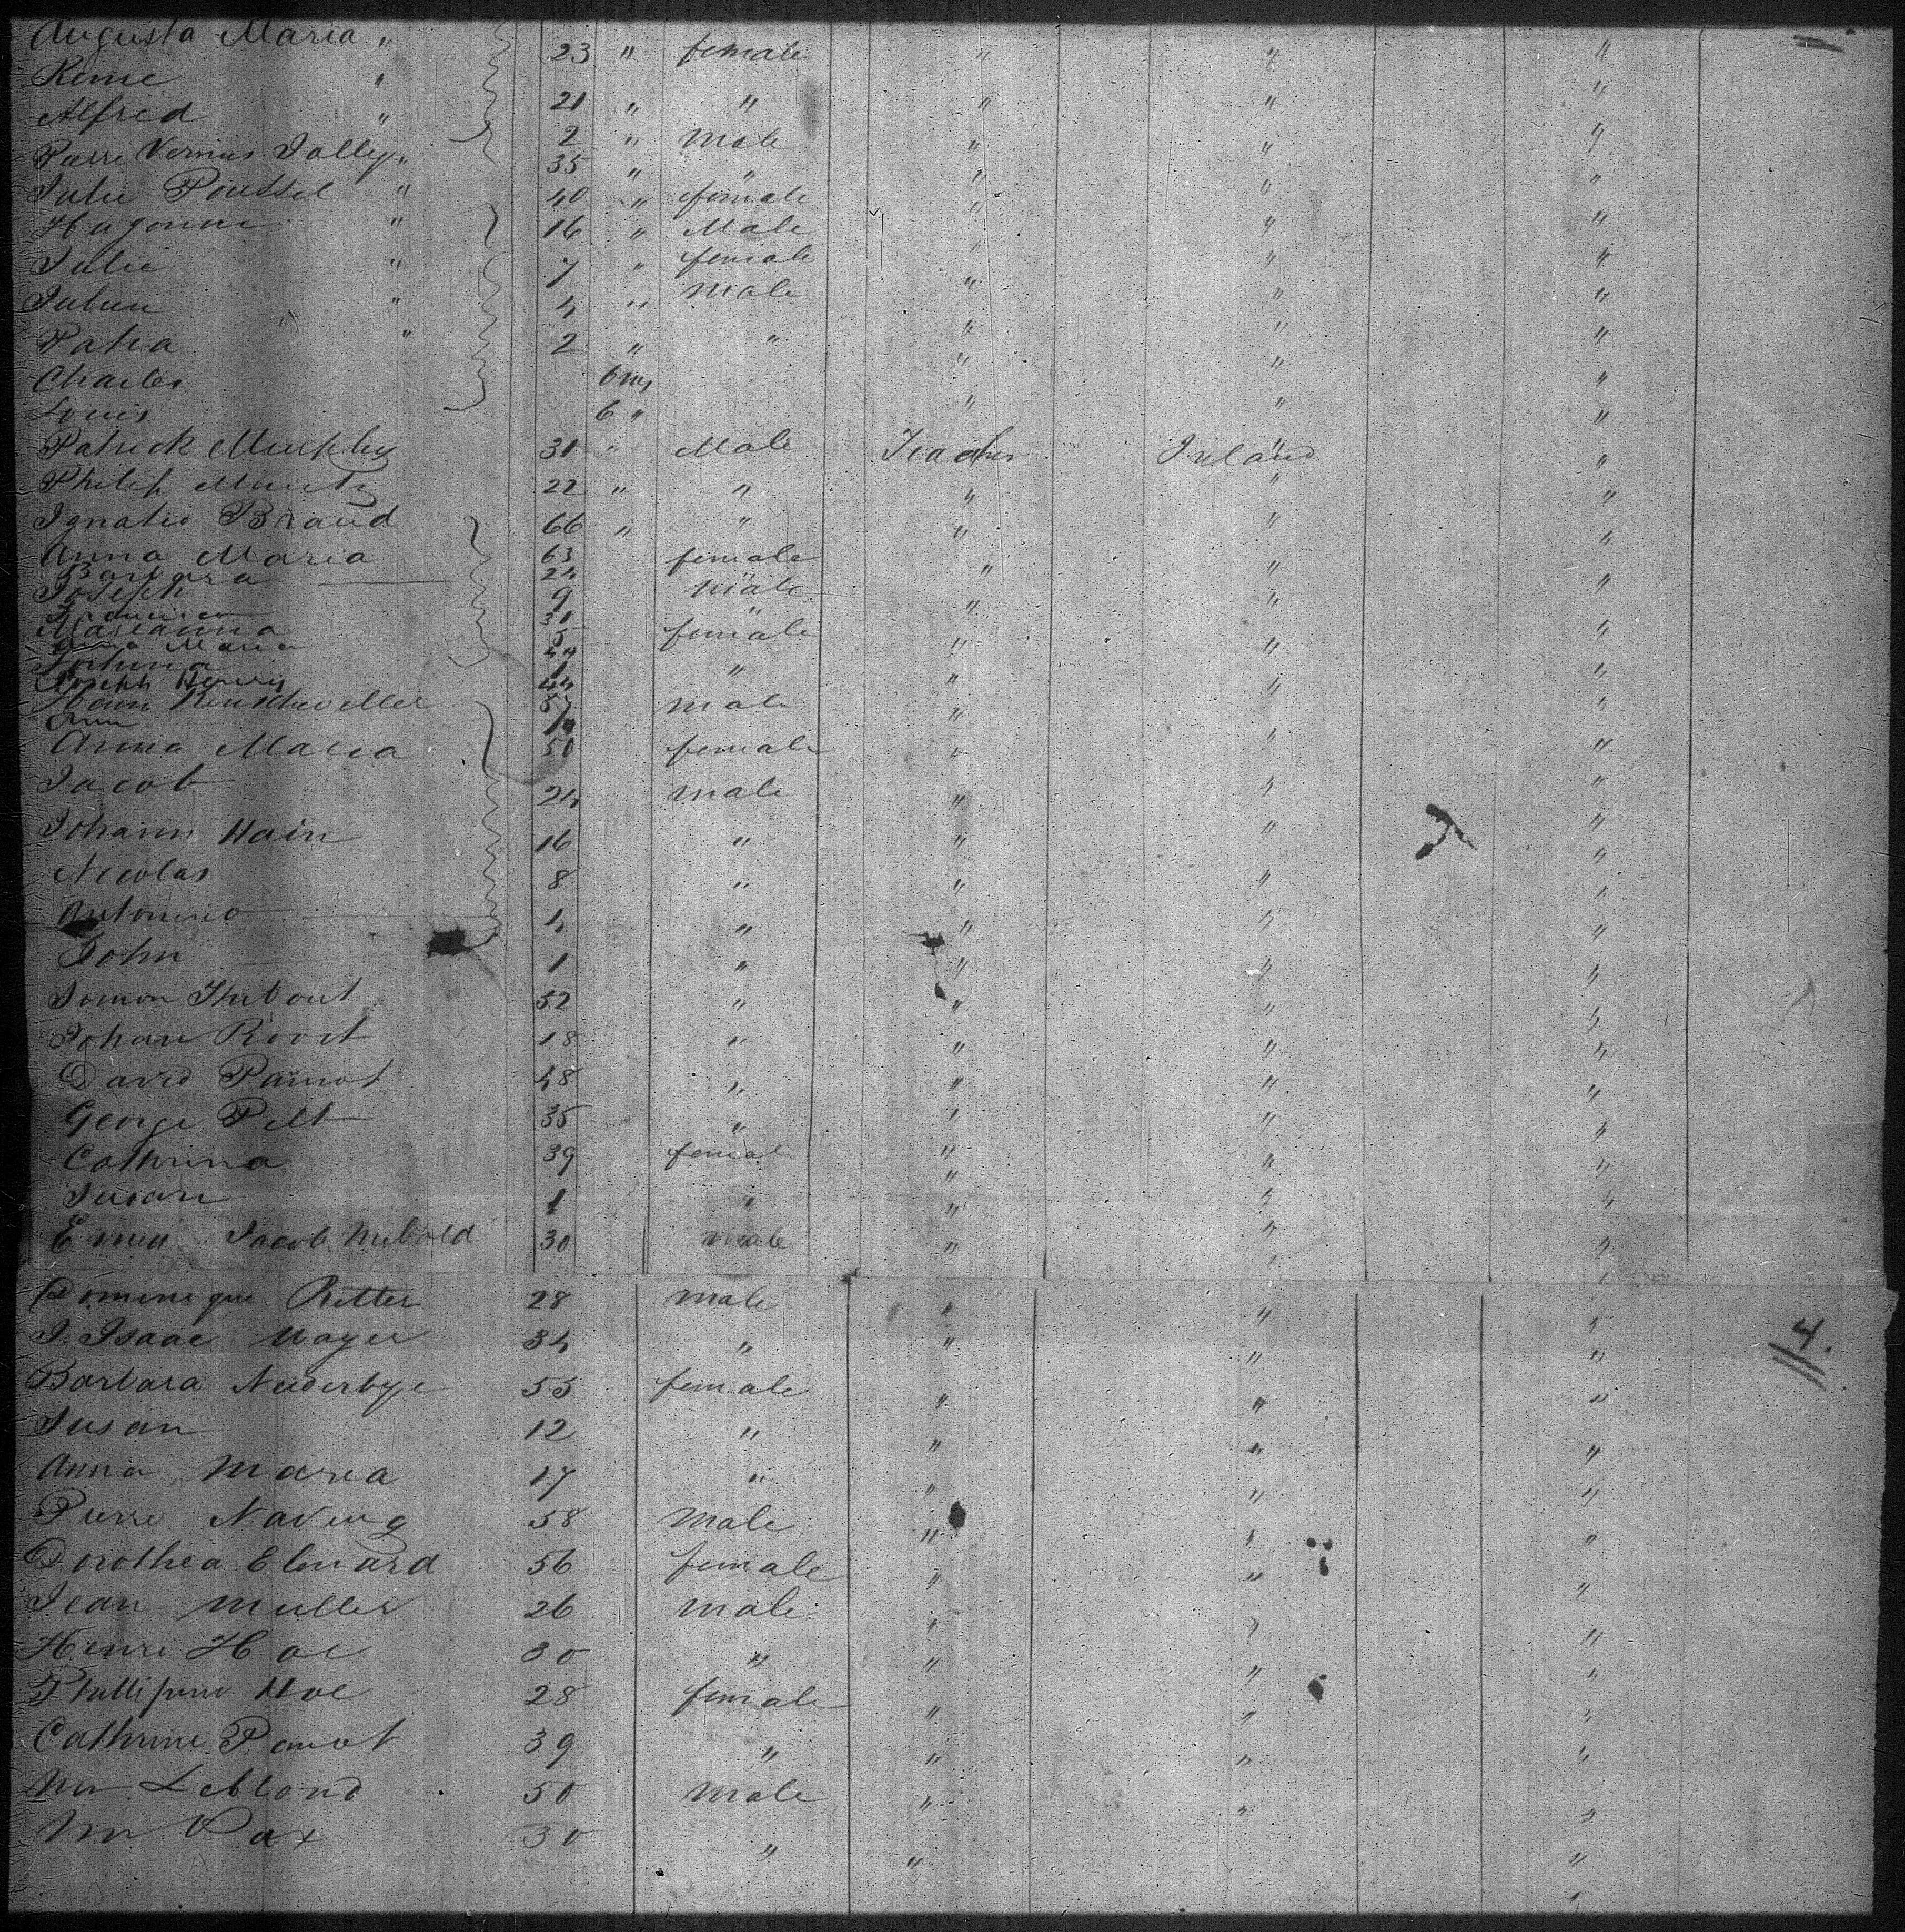 Augusta Maria " 23 " female " " "
Reine " 21 " " " " "
Alfred " 2 " Male " " "
Pierre Vernius Jolley " 35 " " " " "
Julie Poussel " 40 " female " " "
Hugonin " 16 " Male " " "
Julie " 7 " female " " "
" 4 " Male " " "
" 2 " " " " "
Charles 6 ms " " "
Louis 6 " " " "
Patrick Murphy 31 " Male Teacher Ireland "
Philip 22 " " " " "
Ignatio Braud 66 " " " " "
Anna Maria 63 female " " "
Barbara 24 "
Joseph 9 male " " "
Francisco 30 "
Marianna 5 female " " "
Anna Maria 24
1 " " " "
Joseph Henry 44
Hain male " " "
Anna Maria 50 female " " "
Jacob 24 male " " "
Johann Hain 16 " " " "
Nicolas 8 " " " "
Antonio 4 " " " "
John 1 " " " "
Thibout 52 " " " "
Johan 18 " " " "
David Parnot 48 " " " "
George Pelt 35 " " " "
Cathrina 39 female " " "
Susan 1 " " " "
Jacob Nubold 30 male " " "
Domenique Ritter 28 male " " "
J. Isaac Mayer 34 " " " "
4.
Barbara Neederbye 55 female " " "
Susan 12 " " " "
Anna Maria 17 " " " "
Pierre 58 Male " " "
Dorothea Elenard 56 female " " "
Jean Muller 26 male " " "
Henri Hoe 30 " " " "
Phillipine Hoe 28 female " " "
Cathrine Panot 39 " " " "
Mr Leblond 50 Male " " "
Mr Pax 30 " " "